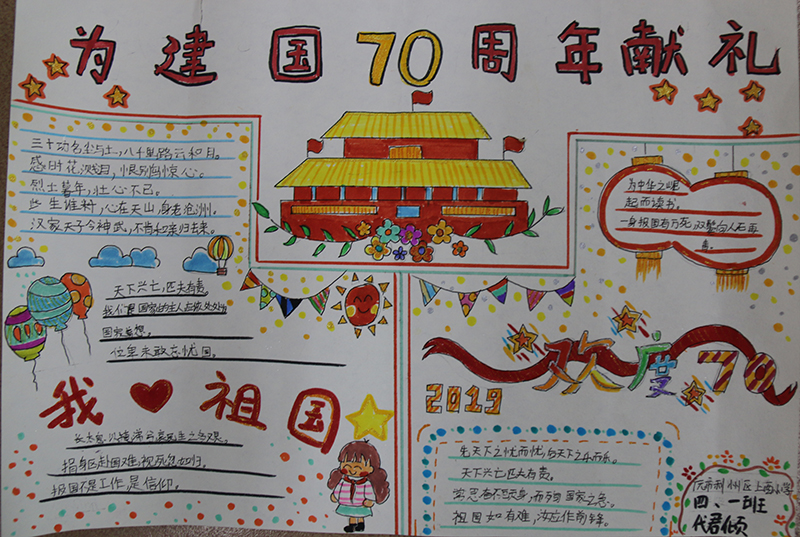 为建国70周年献礼
三十功名尘与土,八千里路云和月。
感时花溅泪,恨别鸟惊心。
烈士暮年,壮心不已。
此生谁料,心在天山,身老沧洲。
汉家天子今神武,不肯和亲归去来。
为中华之崛
起而读书。
一身报国有万死,双鬓向人无再
青。
天下兴亡,匹夫有责。
我们是国家的主人,应处处
国家着想。
位卑未敢忘忧国。
我 祖国
长太息以掩涕兮,哀民生之多艰。
捐躯赴国难,视死忽如归。
报国不是工作是信仰。
欢度70
2019
先天下之忧而忧,后天下之乐而乐。
天下兴亡匹夫有责。
常思奋不顾身,而殉国家之急。
祖国如有难,汝应作前锋。
广元市利州区上西小学
四、一班
代君倾